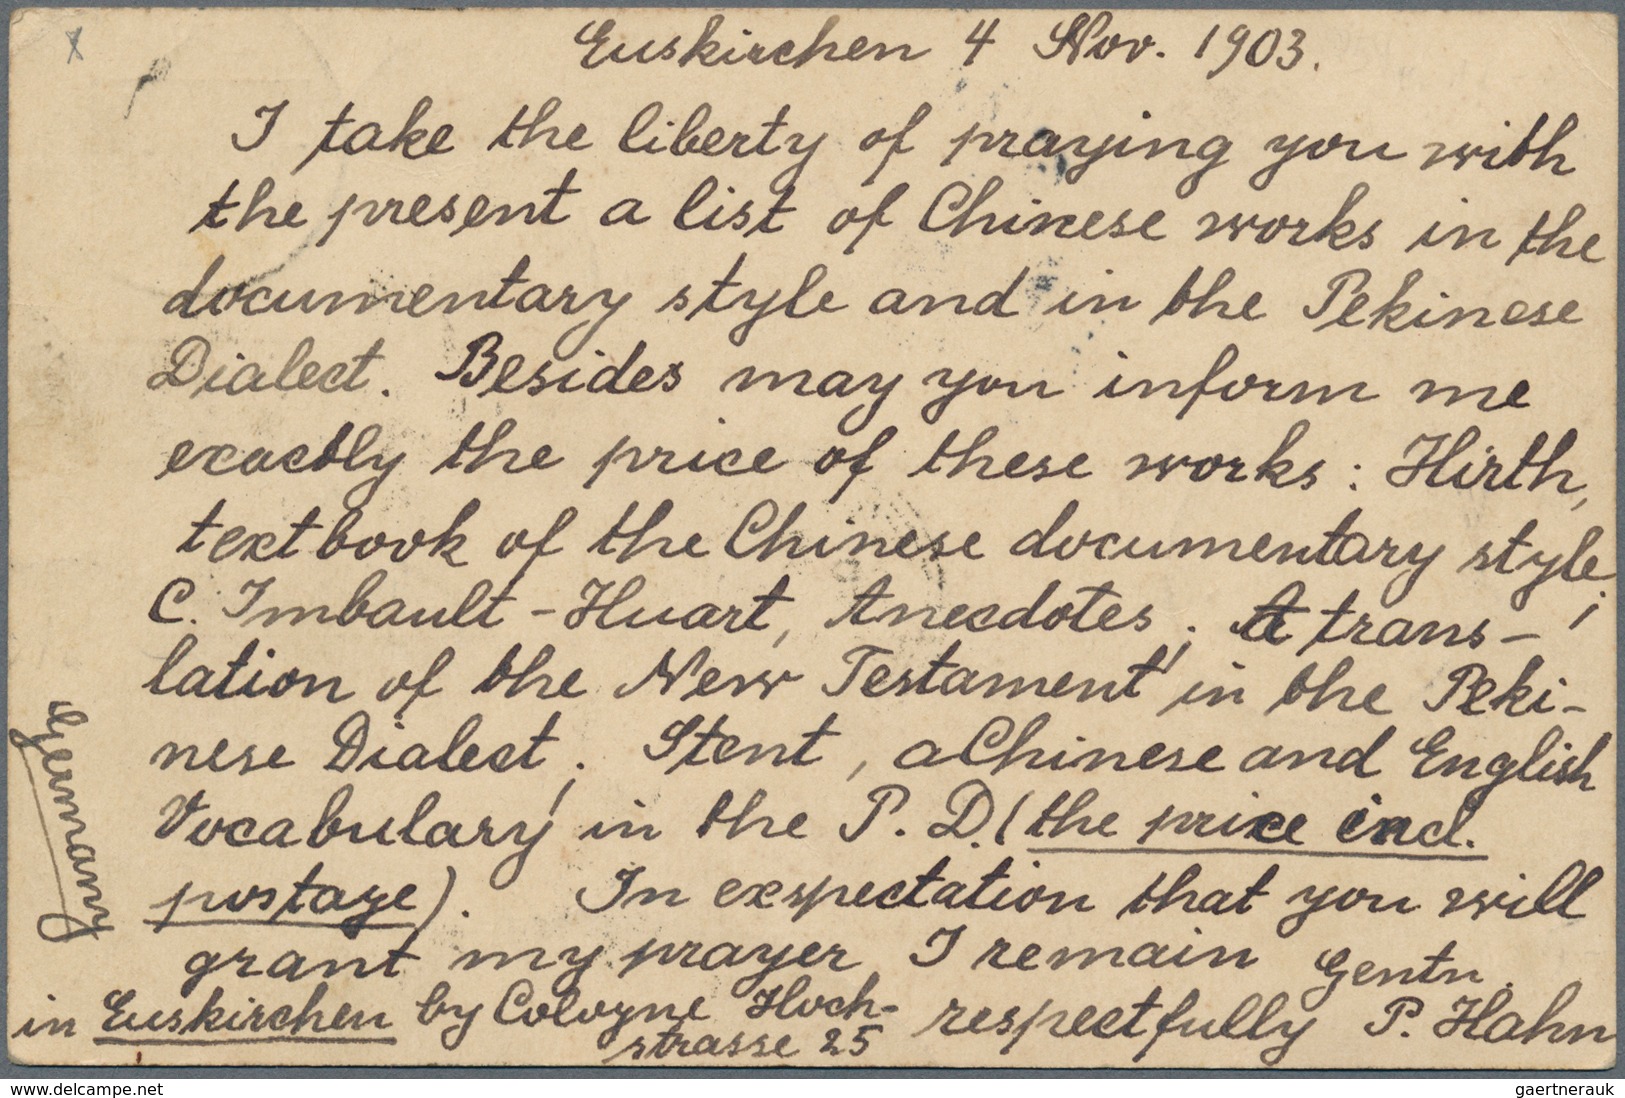 Euskirchen 4 Nov. 1903.
I take the liberty of praying you with
the present a list of Chinese works in the
documentary style and in the Pekinese
Dialect. Besides may you inform me
exactly the price of these works: Hirth,
textbook of the Chinese documentary style;
C. Imbault-Huart, Anecdotes; A trans-
lation of the New Testament in the Peki-
nese Dialect; Stent, a Chinese and English
Vocabulary in the P. D. (the price incl.
postage). In expectation that you will
grant my prayer I remain Gentn.
respectfully P. Hahn
in Euskirchen by Cologne Hoch-
strasse 25
Germany
delcampe.net
gaertnerauk